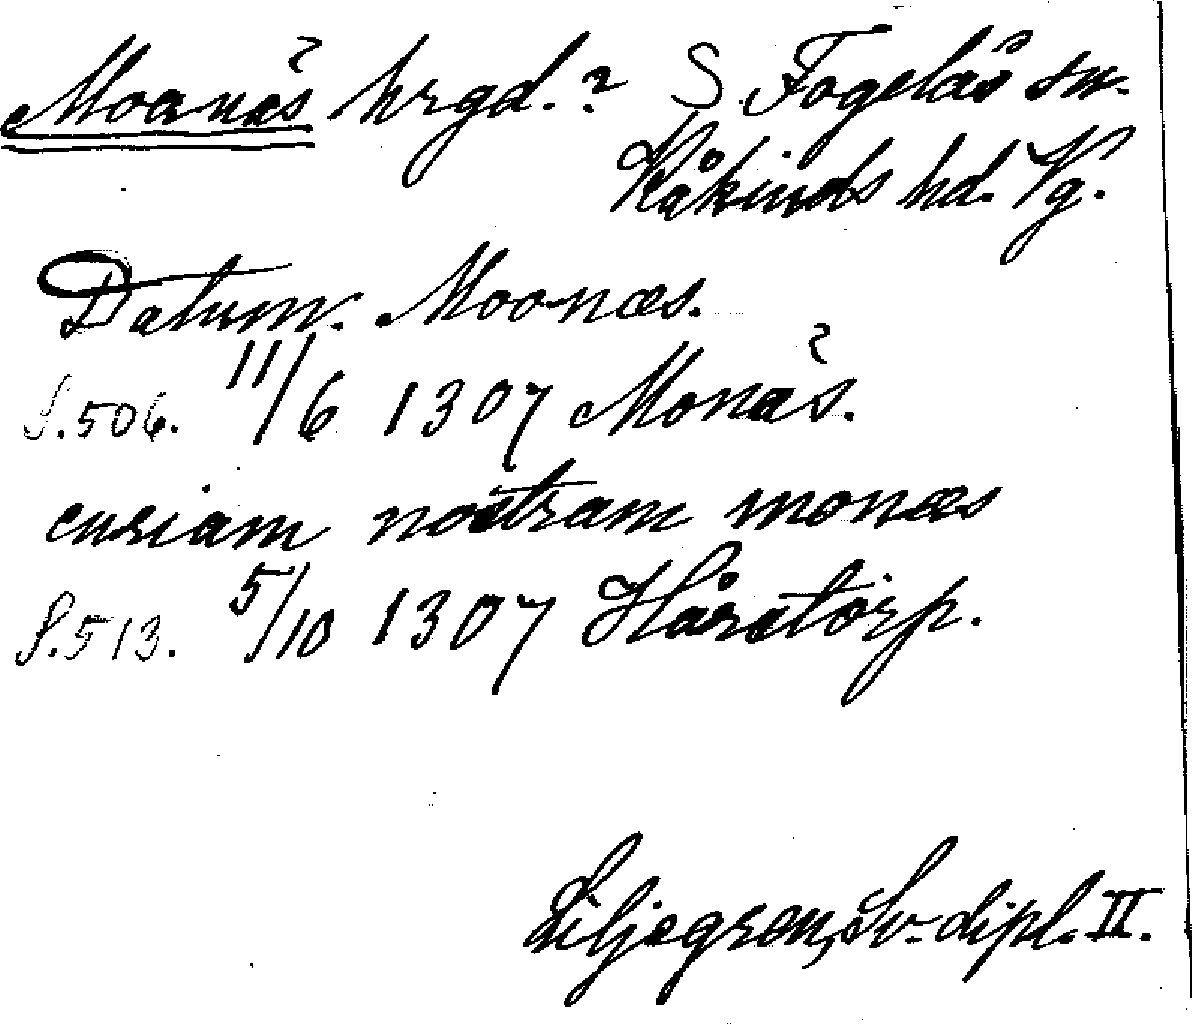 Moanäs hrgd.? S. Fogelås sn.
Kåkinds hd. Vg.
Datum. Moonæs.
S. 506. 11/6 1307 Monäs.
curiam nostram monæs
S. 513. 5/10 1307 Håratorp.
Liljegren, Sv. dipl. II.